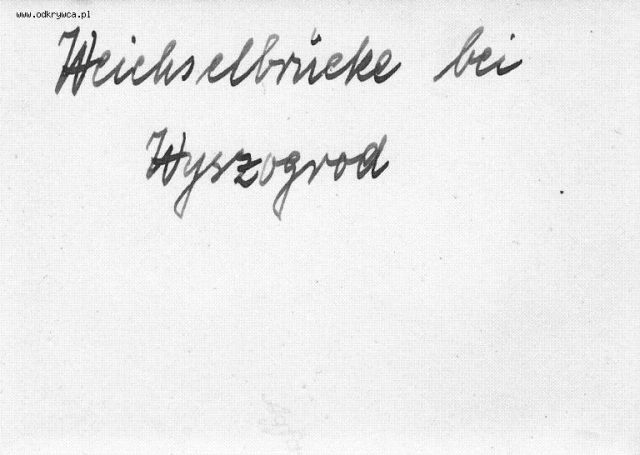 www.odkrywca.pl
Weichselbrücke bei
Wyszogrod